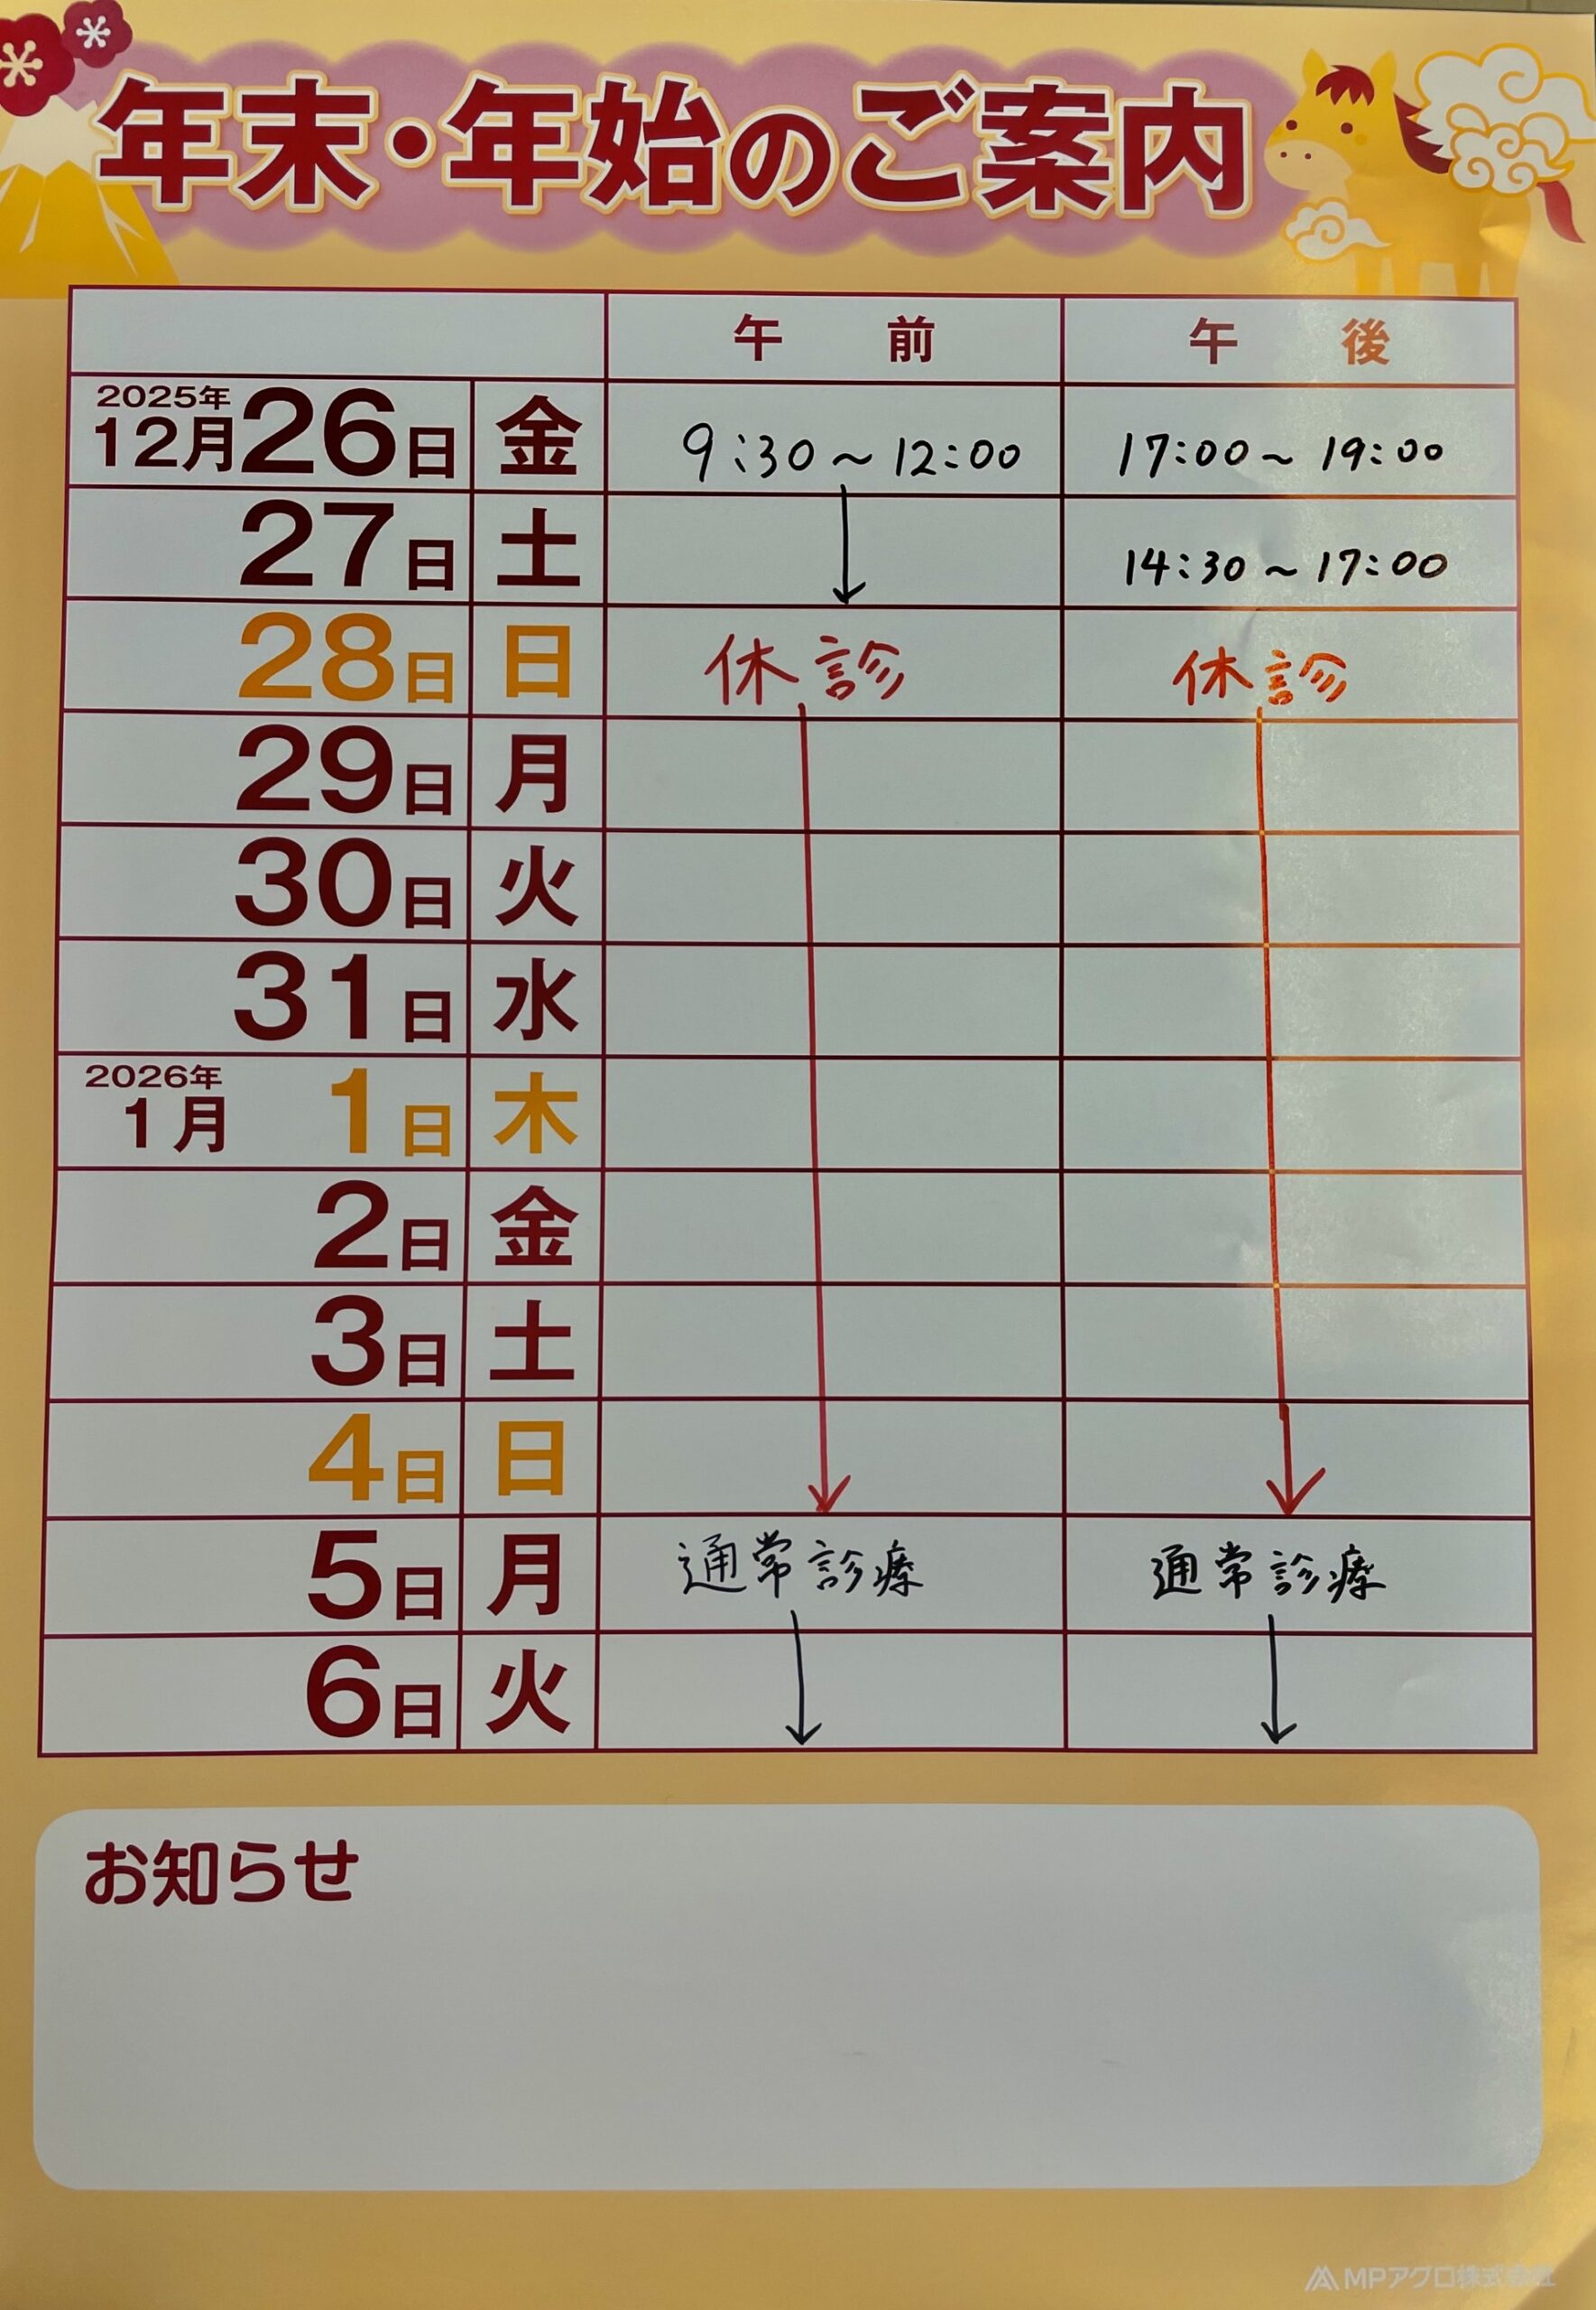 年末・年始のご案内
午前 午後
2025年
12月26日 金 9:30～12:00 17:00～19:00
27日 土 ↓ 14:30～17:00
28日 日 休診 休診
29日 月
30日 火
31日 水
2026年
1月 1日 木
2日 金
3日 土
4日 日
5日 月 通常診療 通常診療
6日 火
お知らせ
MPアグロ株式会社